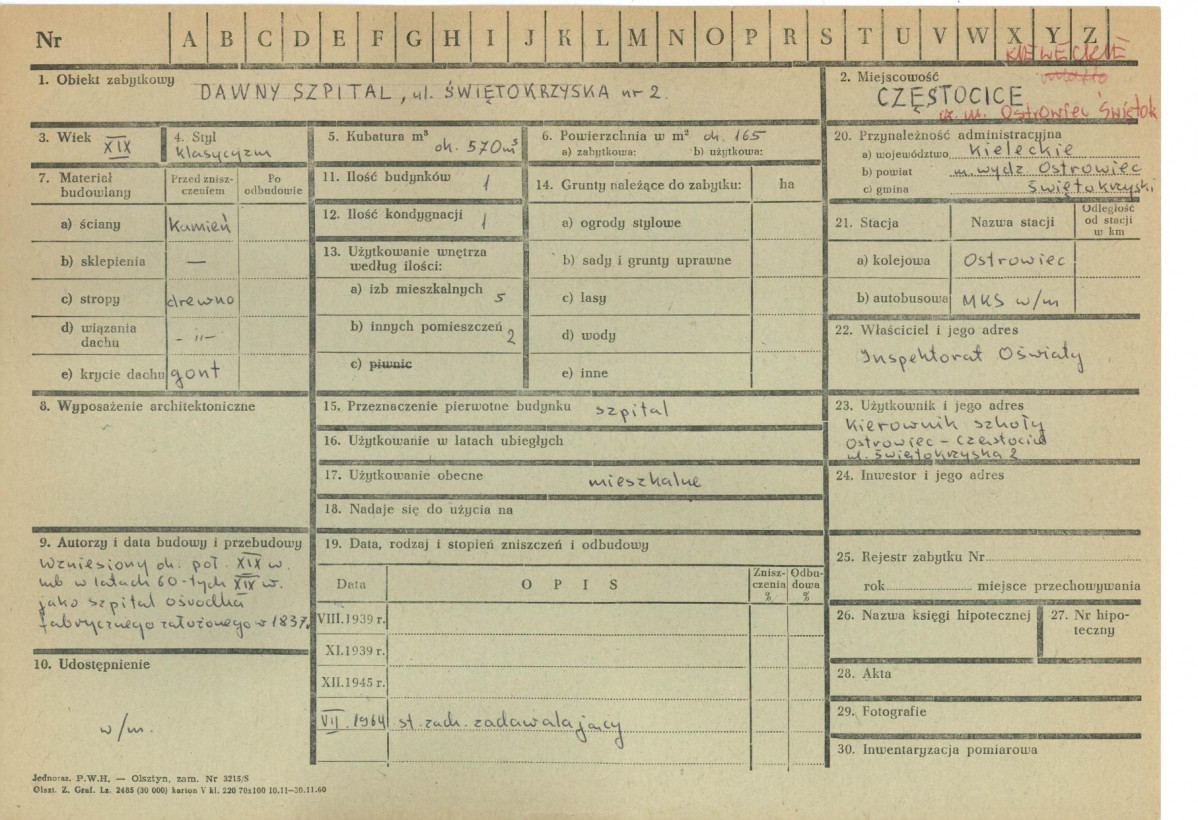 Nr A B C D E F G H I J K L M N O P R S T U V W X Y Z
KIELECKIE
1. Obiekt zabytkowy DAWNY SZPITAL, ul. ŚWIĘTOKRZYSKA nr 2.
2. Miejscowość
CZĘSTOCICE
cz. m. Ostrowiec Świętok
3. Wiek XIX
4. Styl
klasycyzm
5. Kubatura m³
ok. 570m³
6. Powierzchnia w m² ok. 165
a) zabytkowa: b) użytkowa:
7. Materiał budowlany
Przed zniszczeniem
Po odbudowie
a) ściany kamień
b) sklepienia —
c) stropy drewno
d) wiązania dachu - "-
e) krycie dachu gont
8. Wyposażenie architektoniczne
9. Autorzy i data budowy i przebudowy
Wzniesiony ok. poł. XIX w.
lub w latach 60-tych XIX w.
jako szpital ośrodka
fabrycznego założonego w 1837r.
10. Udostępnienie
w/m.
11. Ilość budynków 1
12. Ilość kondygnacji 1
13. Użytkowanie wnętrza
według ilości:
a) izb mieszkalnych 5
b) innych pomieszczeń 2
c) piwnic
14. Grunty należące do zabytku: ha
a) ogrody stylowe
b) sady i grunty uprawne
c) lasy
d) wody
e) inne
15. Przeznaczenie pierwotne budynku szpital
16. Użytkowanie w latach ubiegłych
17. Użytkowanie obecne mieszkalne
18. Nadaje się do użycia na
19. Data, rodzaj i stopień zniszczeń i odbudowy
Data O P I S Zniszczenia % Odbudowa %
VIII.1939 r.
XI.1939 r.
XII.1945 r.
VII. 1964 st. zach. zadawalający
20. Przynależność administracyjna
a) województwo Kieleckie
b) powiat m. wydz Ostrowiec
c) gmina Świętokrzyski
21. Stacja Nazwa stacji Odległość od stacji w km
a) kolejowa Ostrowiec
b) autobusowa MKS w/m
22. Właściciel i jego adres
Inspektorat Oświaty
23. Użytkownik i jego adres
Kierownik szkoły
Ostrowiec - Częstocice
ul. Świętokrzyska 2
24. Inwestor i jego adres
25. Rejestr zabytku Nr
rok miejsce przechowywania
26. Nazwa księgi hipotecznej
27. Nr hipoteczny
28. Akta
29. Fotografie
30. Inwentaryzacja pomiarowa
Jednoraz. P.W.H. — Olsztyn, zam. Nr 3215/S
Olszt. Z. Graf. Lz. 2485 (30 000) karton V kl. 220 70x100 10.11—30.11.60